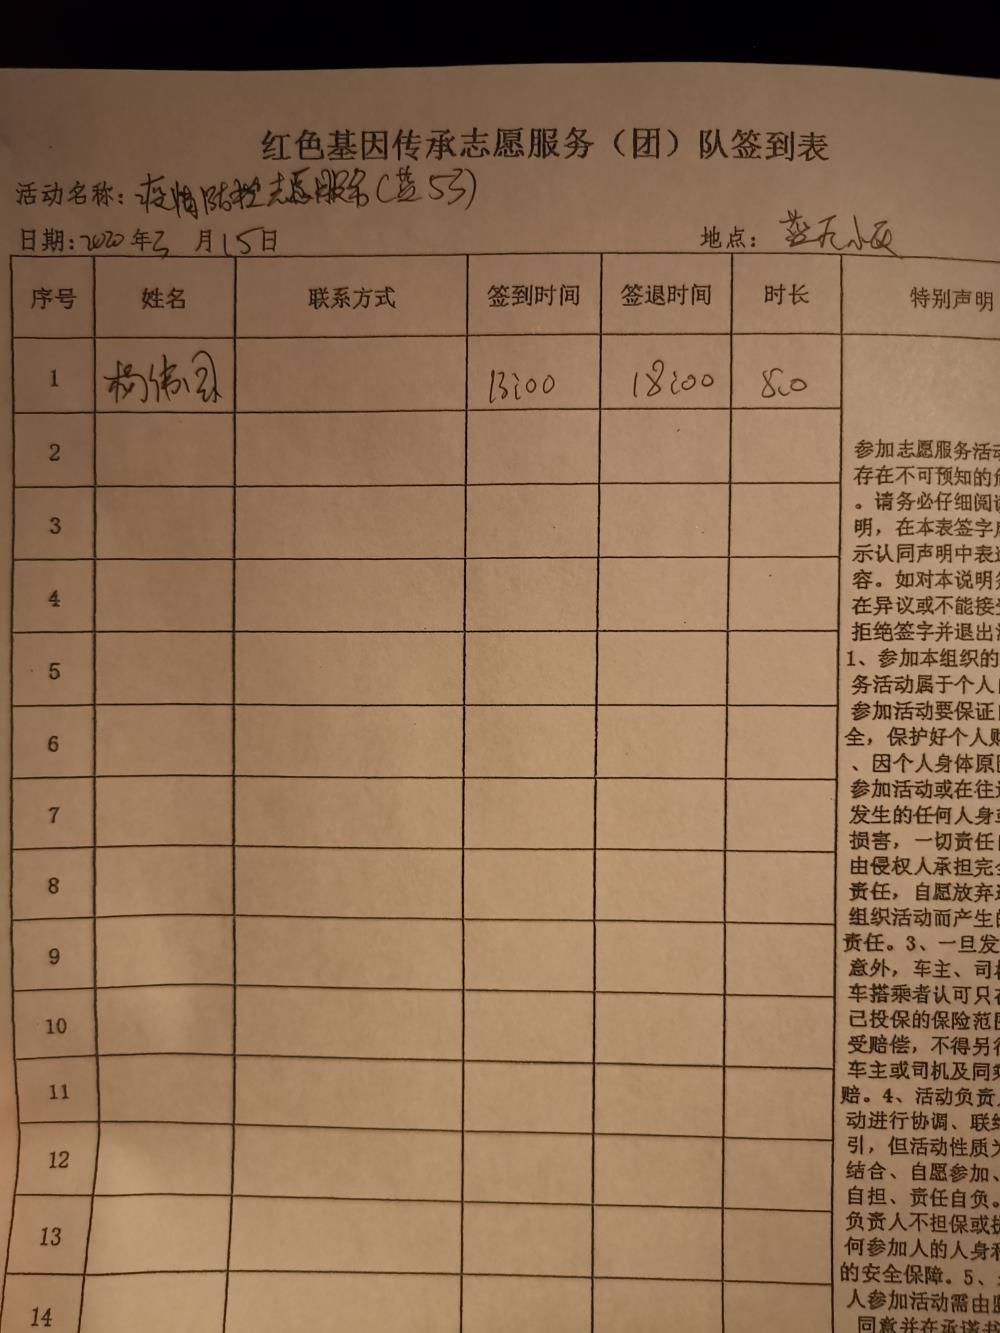 红色基因传承志愿服务（团）队签到表
活动名称：疫情防控志愿服务（蓝53）
日期：2020年3月15日 地点：蓝天小区
序号 姓名 联系方式 签到时间 签退时间 时长 特别声明
1 杨伟 13:00 18:00
2
3
4
5
6
7
8
9
10
11
12
13
14
参加志愿服务活动
存在不可预知的
。请务必仔细阅读
明，在本表签字
示认同声明中表
容。如对本说明
在异议或不能接受
拒绝签字并退出
1、参加本组织的
务活动属于个人
参加活动要保证
全，保护好个人
、因个人身体原因
参加活动或在往
发生的任何人身
损害，一切责任
由侵权人承担完全
责任，自愿放弃
组织活动而产生的
责任。3、一旦发
意外，车主、司机
车搭乘者认可只在
已投保的保险范围
受赔偿，不得另
车主或司机及同乘
赔。4、活动负责
动进行协调、联络
引，但活动性质为
结合、自愿参加、
自担、责任自负。
负责人不担保或
何参加人的人身
的安全保障。5、
人参加活动需由
同意并在承诺书